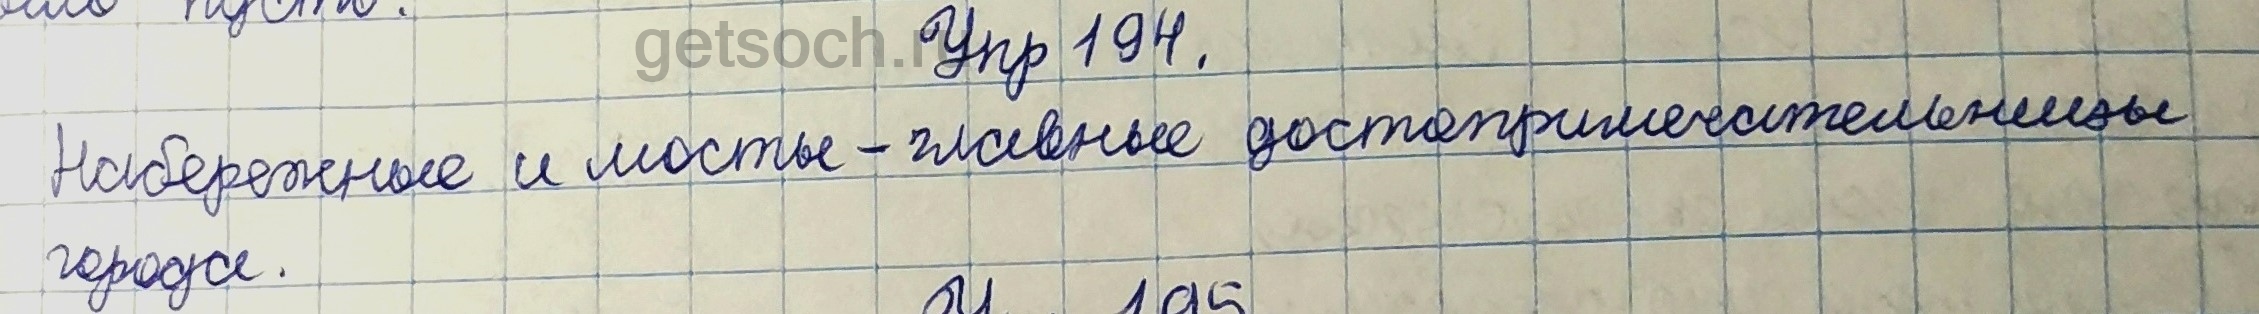 пусто.
getsoch.r
Упр 194.
Набережные и мосты – главные достопримечательницы
города.
195